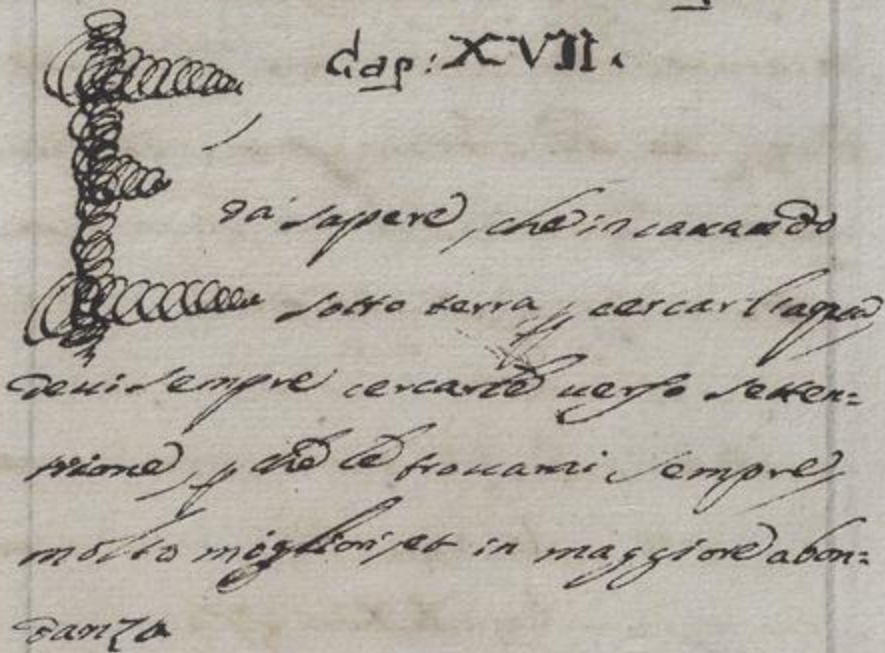 Cap: XVII.
E da' sapere, che in cauando
sotto terra, p cercar l'aqua
deui sempre cercarle uerso setten=
trione, p che le trouarai sempre
molto migliori, et in maggiore abon=
danza